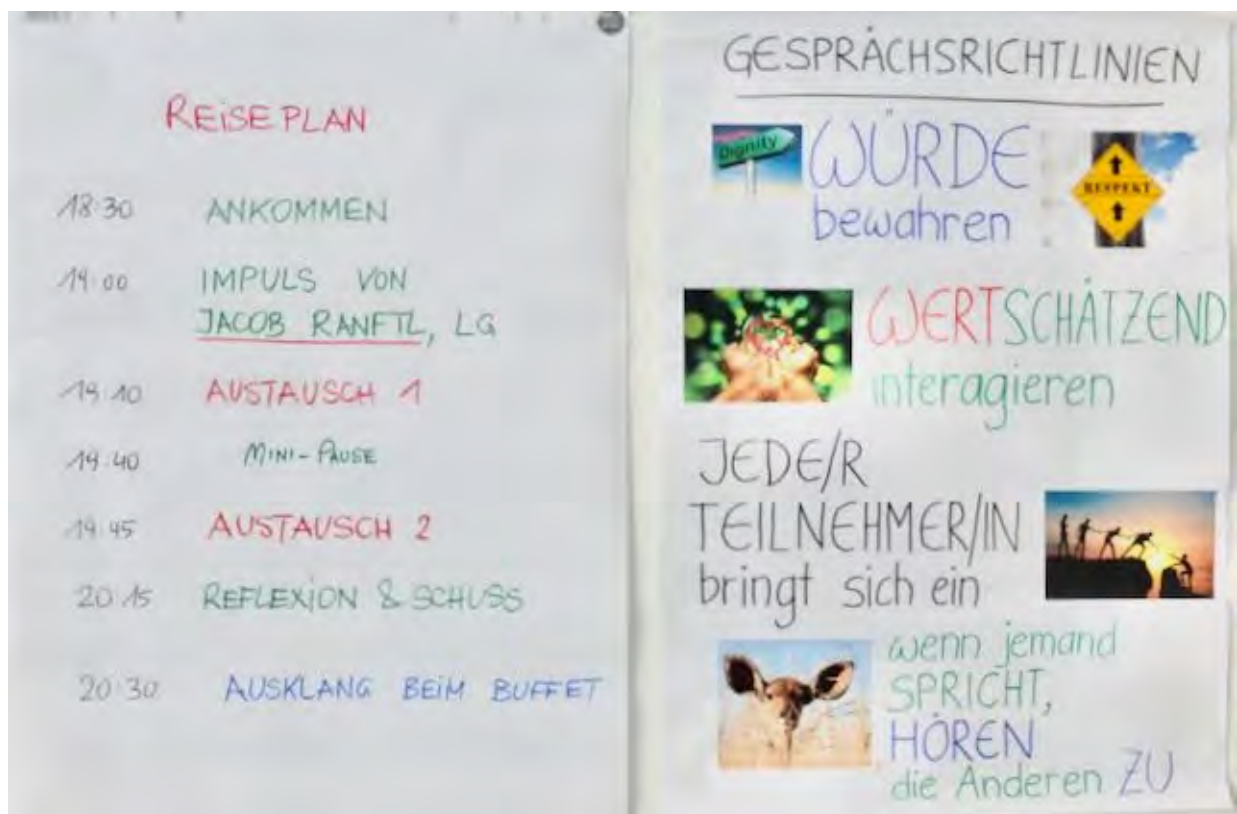 REISEPLAN
18:30 ANKOMMEN
19:00 IMPULS VON
JACOB RANFTL, LG
19:10 AUSTAUSCH 1
19:40 MINI-PAUSE
19:45 AUSTAUSCH 2
20:15 REFLEXION & SCHUSS
20:30 AUSKLANG BEIM BUFFET
GESPRÄCHSRICHTLINIEN
Dignity
WÜRDE
bewahren
RESPEKT
WERTSCHÄTZEND
interagieren
JEDE/R
TEILNEHMER/IN
bringt sich ein
wenn jemand
SPRICHT,
HÖREN
die Anderen ZU